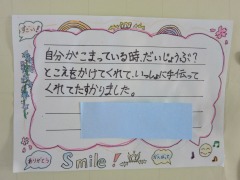 自分がこまっている時、だいじょうぶ?
とこえをかけてくれて、いっしょに手伝って
くれてたすかりました。
ありがとう
Smile!